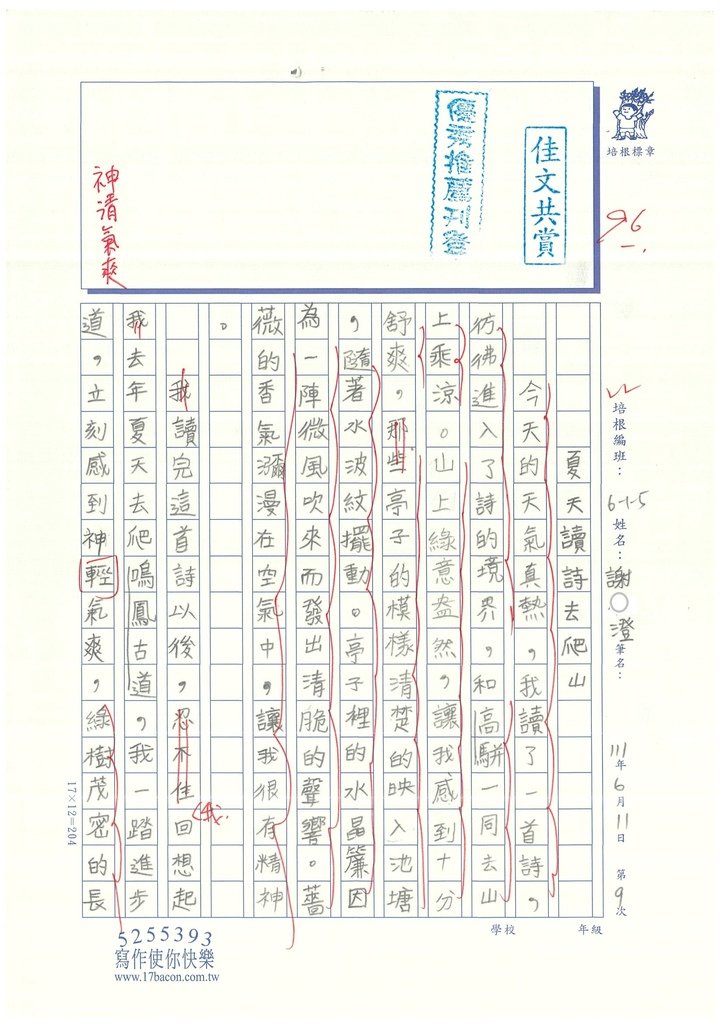 培根標章
96
佳文共賞
優秀推薦刊登
神清氣爽
培根編班：6-1-5 姓名：謝○澄 筆名： 111年6月11日 第9次
夏天讀詩去爬山
今天的天氣真熱，我讀了一首詩，
彷彿進入了詩的境界，和高駢一同去山
上乘涼。山上綠意盎然，讓我感到十分
舒爽，那些亭子的模樣清楚的映入池塘
，隨著水波紋擺動。亭子裡的水晶簾因
為一陣微風吹來而發出清脆的聲響。薔
薇的香氣瀰漫在空氣中，讓我很有精神
。
我讀完這首詩以後，忍不住回想起
我
我去年夏天去爬鳴鳳古道，我一踏進步
道，立刻感到神輕氣爽，綠樹茂密的長
17×12=204
學校 年級
5255393
寫作使你快樂
www.17bacon.com.tw